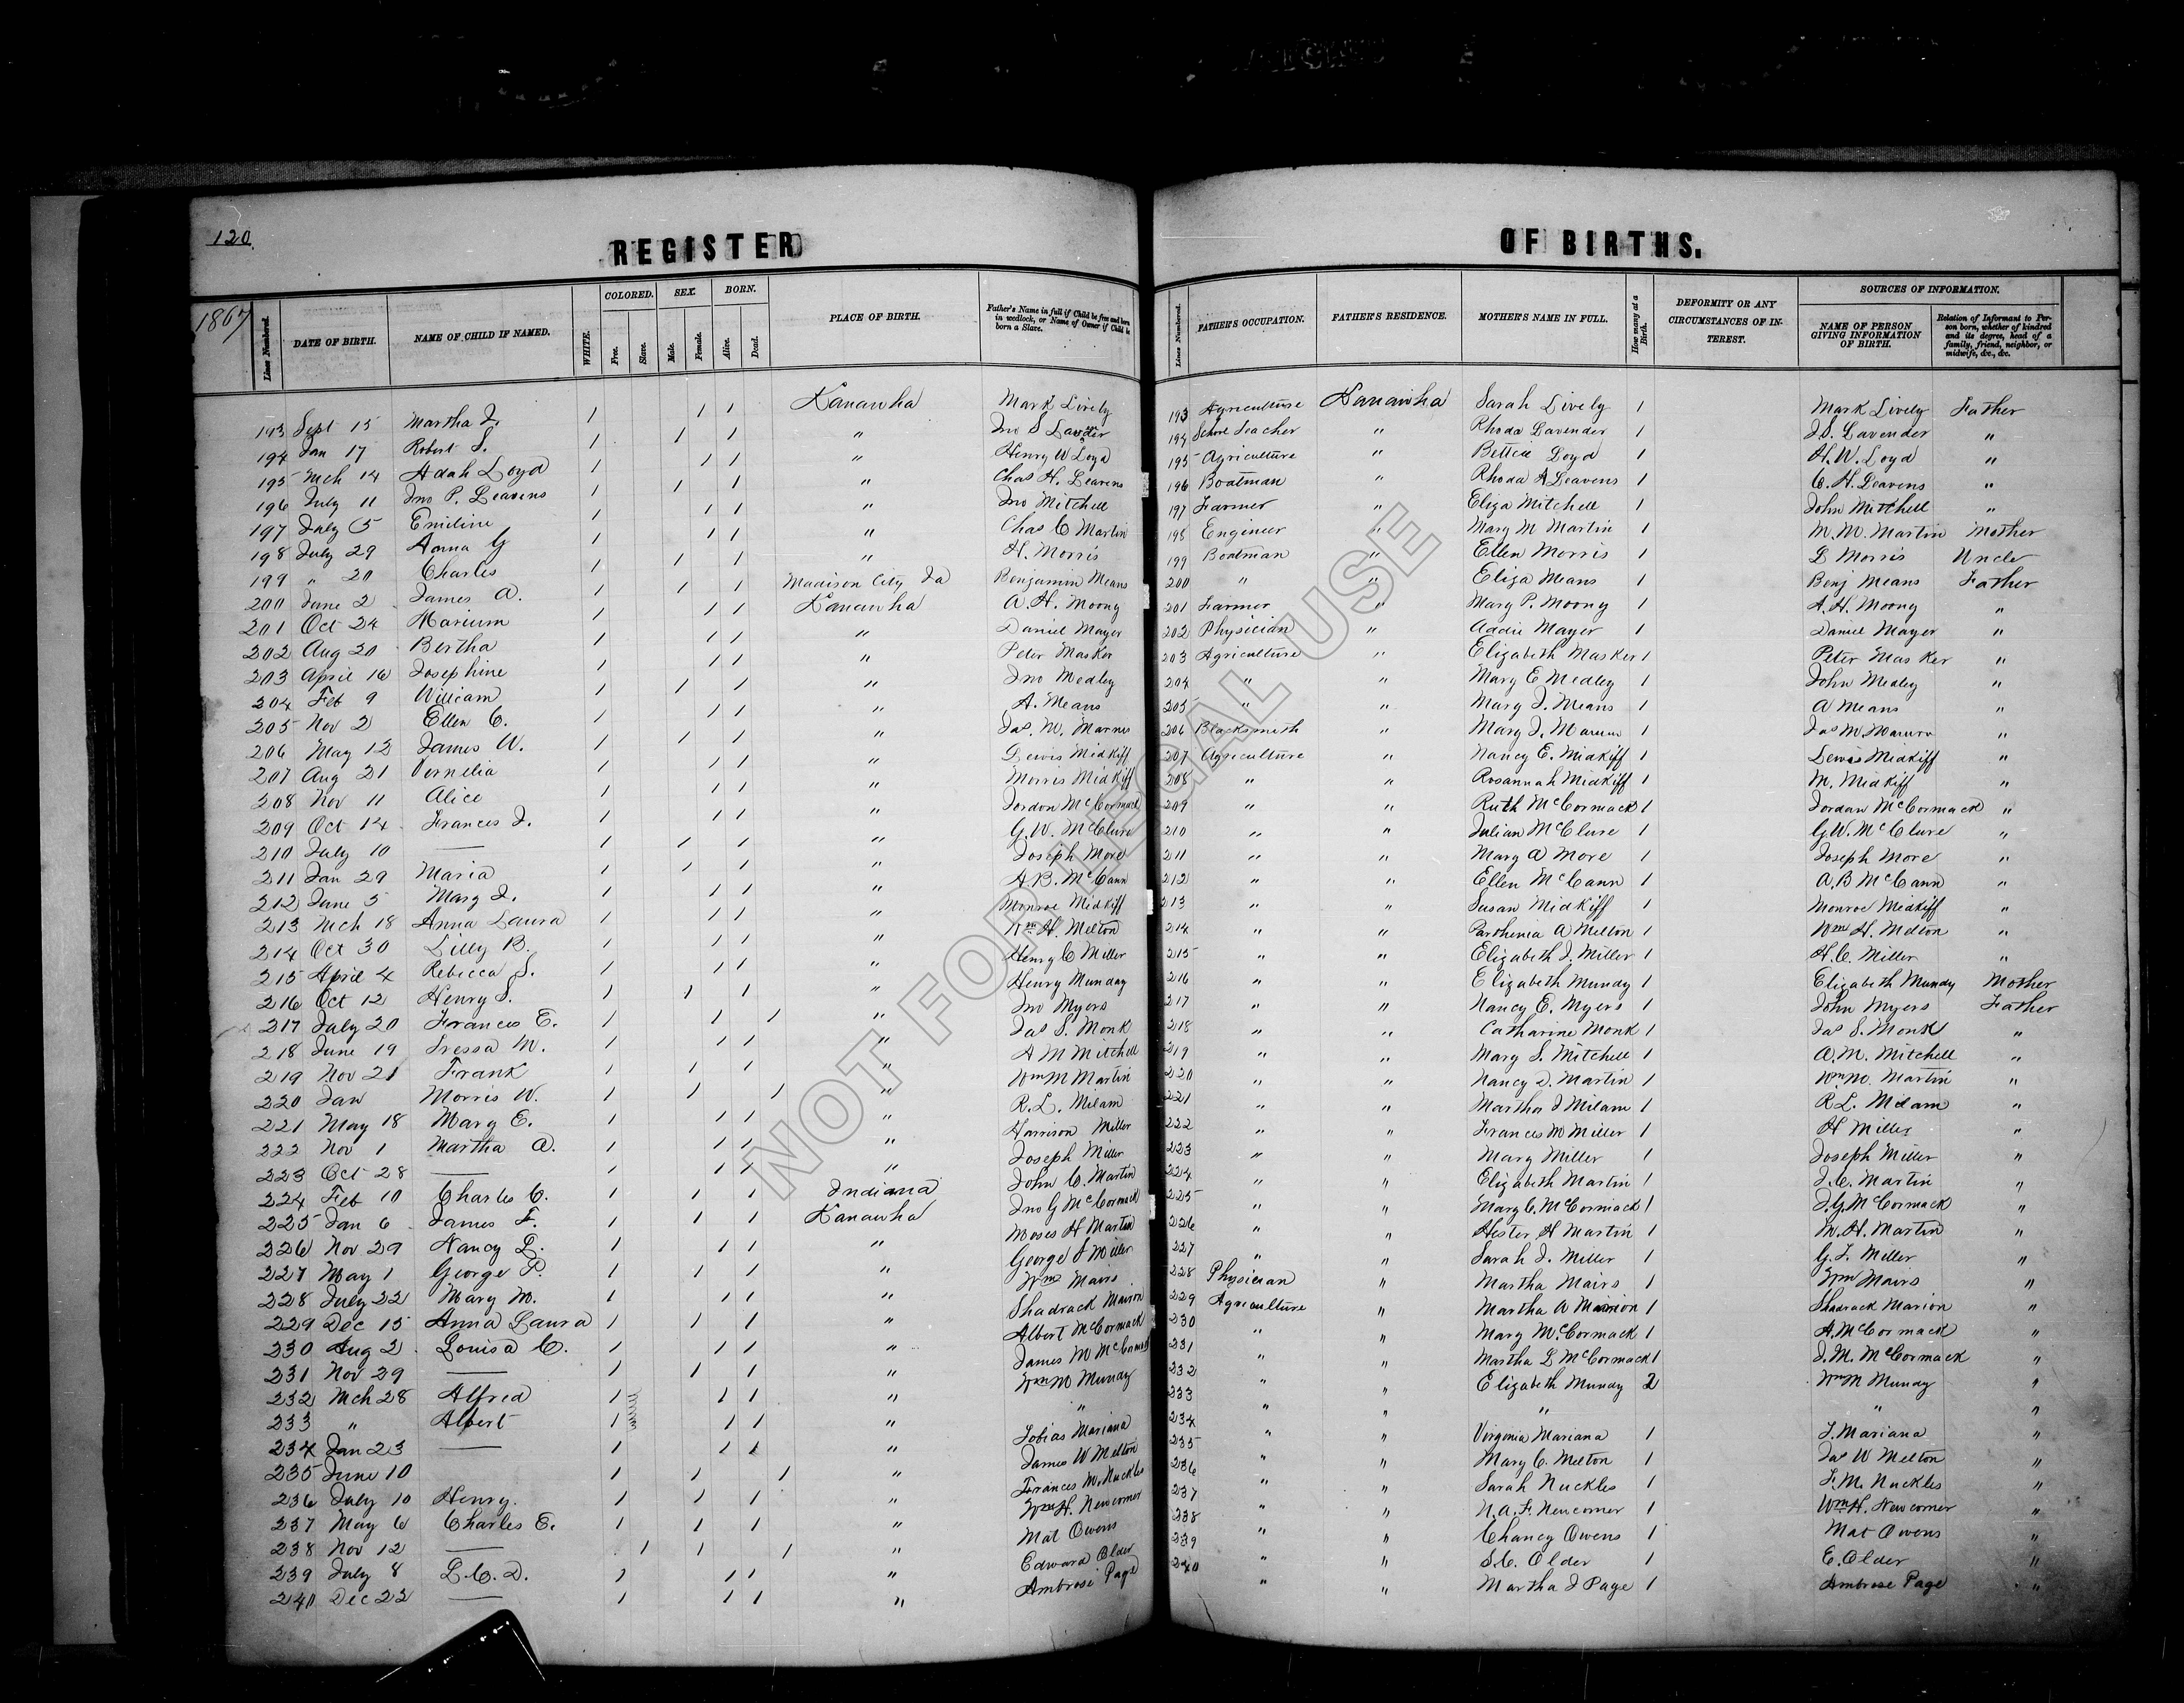 120.
REGISTER OF BIRTHS.
1867
Lines Numbered. DATE OF BIRTH. NAME OF CHILD IF NAMED. WHITE. COLORED. Free. Slave. SEX. Male. Female. BORN. Alive. Dead. PLACE OF BIRTH. Father's Name in full if Child be free and born in wedlock, or Name of Owner if Child be born a Slave. Lines Numbered. FATHER'S OCCUPATION. FATHER'S RESIDENCE. MOTHER'S NAME IN FULL. How many at a Birth. DEFORMITY OR ANY CIRCUMSTANCES OF INTEREST. SOURCES OF INFORMATION. NAME OF PERSON GIVING INFORMATION OF BIRTH. Relation of Informant to Person born, whether of kindred and its degree, head of a family, friend, neighbor, or midwife, &c., &c.
193 Sept 15 Martha J. 1 1 1 Kanawha Mark Lively 193 Agriculture Kanawha Sarah Lively 1 Mark Lively Father
194 Jan 17 Robert S. 1 1 1 " Jno S 194 School Teacher " Rhoda Lavender 1 J.S. Lavender "
195 Mch 14 Adah Loyd 1 1 1 " Henry W Loyd 195 Agriculture " Bettie Loyd 1 H.W. Loyd "
196 July 11 Jno P. Leavens 1 1 1 " Chas H. Leavens 196 Boatman " Rhoda A Leavens 1 C.H. Leavens "
197 July 5 Emiline 1 1 1 " Jno Mitchell 197 Farmer " Eliza Mitchell 1 John Mitchell "
198 July 29 Anna G 1 1 1 " Chas C Martin 198 Engineer " Mary M Martin 1 M.M. Martin Mother
199 " 20 Charles 1 1 1 " H. Morris 199 Boatman " Ellen Morris 1 L Morris Uncle
200 June 2 James A. 1 1 1 Madison City Benjamin Means 200 " " Eliza Means 1 Benj Means Father
201 Oct 24 Marium 1 1 1 Kanawha A.H. Moony 201 Farmer " Mary P. Moony 1 A.H. Moony "
202 Aug 20 Bertha 1 1 1 " Daniel Mayer 202 Physician " Addie Mayer 1 Daniel Mayer "
203 April 16 Josephine 1 1 1 " Peter Masker 203 Agriculture " Elizabeth Masker 1 Peter Masker "
204 Feb 9 William 1 1 1 " Jno Medley 204 " " Mary E Medley 1 John Medley "
205 Nov 2 Ellen C. 1 1 1 " A. Means 205 " " Mary J. Means 1 A Means "
206 May 12 James W. 1 1 1 " Jas. M. 206 Blacksmith " Mary J. 1 Jas M. "
207 Aug 21 Vernelia 1 1 1 " Lewis Midkiff 207 Agriculture " Nancy E. Midkiff 1 Lewis Midkiff "
208 Nov 11 Alice 1 1 1 " Morris Midkiff 208 " " Rosannah Midkiff 1 M. Midkiff "
209 Oct 14 Frances J. 1 1 1 " Jordon McCormack 209 " " Ruth McCormack 1 Jordan McCormack "
210 July 10 — 1 1 1 " G.W. McClure 210 " " Julian McClure 1 G.W. McClure "
211 Jan 29 Maria 1 1 1 " Joseph More 211 " " Mary A More 1 Joseph More "
212 June 5 Mary J. 1 1 1 " A.B. McCann 212 " " Ellen McCann 1 A.B McCann "
213 Mch 18 Anna Laura 1 1 1 " Monroe Midkiff 213 " " Susan Midkiff 1 Monroe Midkiff "
214 Oct 30 Lilly B. 1 1 1 " Wm H. Melton 214 " " Parthenia A Melton 1 Wm H. Melton "
215 April 4 Rebecca S. 1 1 1 " Henry C Miller 215 " " Elizabeth J. Miller 1 H.C. Miller "
216 Oct 12 Henry S. 1 1 1 " Henry Munday 216 " " Elizabeth Mundy 1 Elizabeth Mundy Mother
217 July 20 Frances E. 1 1 1 " Jno Myers 217 " " Nancy E. Myers 1 John Myers Father
218 June 19 Tressa M. 1 1 1 " Jas S. Monk 218 " " Catharine Monk 1 Jas S. Monk "
219 Nov 21 Frank 1 1 1 " A M Mitchell 219 " " Mary S. Mitchell 1 A.M. Mitchell "
220 Jan Morris W. 1 1 1 " Wm M Martin 220 " " Nancy D. Martin 1 Wm M. Martin "
221 May 18 Mary E. 1 1 1 " R.L. Milam 221 " " Martha J Milam 1 R L. Milam "
222 Nov 1 Martha A. 1 1 1 " Harrison Miller 222 " " Frances M Miller 1 H Miller "
223 Oct 28 — 1 1 1 " Joseph Miller 223 " " Mary Miller 1 Joseph Miller "
224 Feb 10 Charles C. 1 1 1 Indiana John C. Martin 224 " " Elizabeth Martin 1 J.C. Martin "
225 Jan 6 James F. 1 1 1 Kanawha Jno G McCormack 225 " " Mary C. McCormack 1 J.G. McCormack "
226 Nov 29 Nancy L. 1 1 1 " Moses H Martin 226 " " Hester A Martin 1 M.H. Martin "
227 May 1 George P. 1 1 1 " George F Miller 227 " " Sarah J. Miller 1 G.F. Miller "
228 July 22 Mary M. 1 1 1 " Wm Mairs 228 Physician " Martha Mairs 1 Wm Mairs "
229 Dec 15 Anna Laura 1 1 1 " Shadrack Marion 229 Agriculture " Martha A Marion 1 Shadrack Marion "
230 Aug 2 Louisa C. 1 1 1 " Albert McCormack 230 " " Mary McCormack 1 A. McCormack "
231 Nov 29 — 1 1 1 " James M McCormack 231 " " Martha L McCormack 1 J.M. McCormack "
232 Mch 28 Alfred 1 1 1 " Wm M Mundy 232 " " Elizabeth Mundy 2 Wm M Mundy "
233 " Albert 1 1 1 " " 233 " " " " "
234 Jan 23 — 1 1 1 " Tobias Mariana 234 " " Virginia Mariana 1 T. Mariana "
235 June 10 1 1 1 " James W Melton 235 " " Mary C. Melton 1 Jas W Melton "
236 July 10 Henry. 1 1 1 " Frances M. Nuckles 236 " " Sarah Nuckles 1 F.M. Nuckles "
237 May 6 Charles E. 1 1 1 " Wm H. Newcomer 237 " " N.A.F. Newcomer 1 Wm H. Newcomer "
238 Nov 12 — 1 1 1 " Mat Owens 238 " " Chancy Owens 1 Mat Owens "
239 July 8 L.C.D. 1 1 1 " Edward Older 239 " " S.C. Older 1 E. Older "
240 Dec 22 — 1 1 1 " Ambrose Page 240 " " Martha J Page 1 Ambrose Page "
NOT FOR LEGAL USE